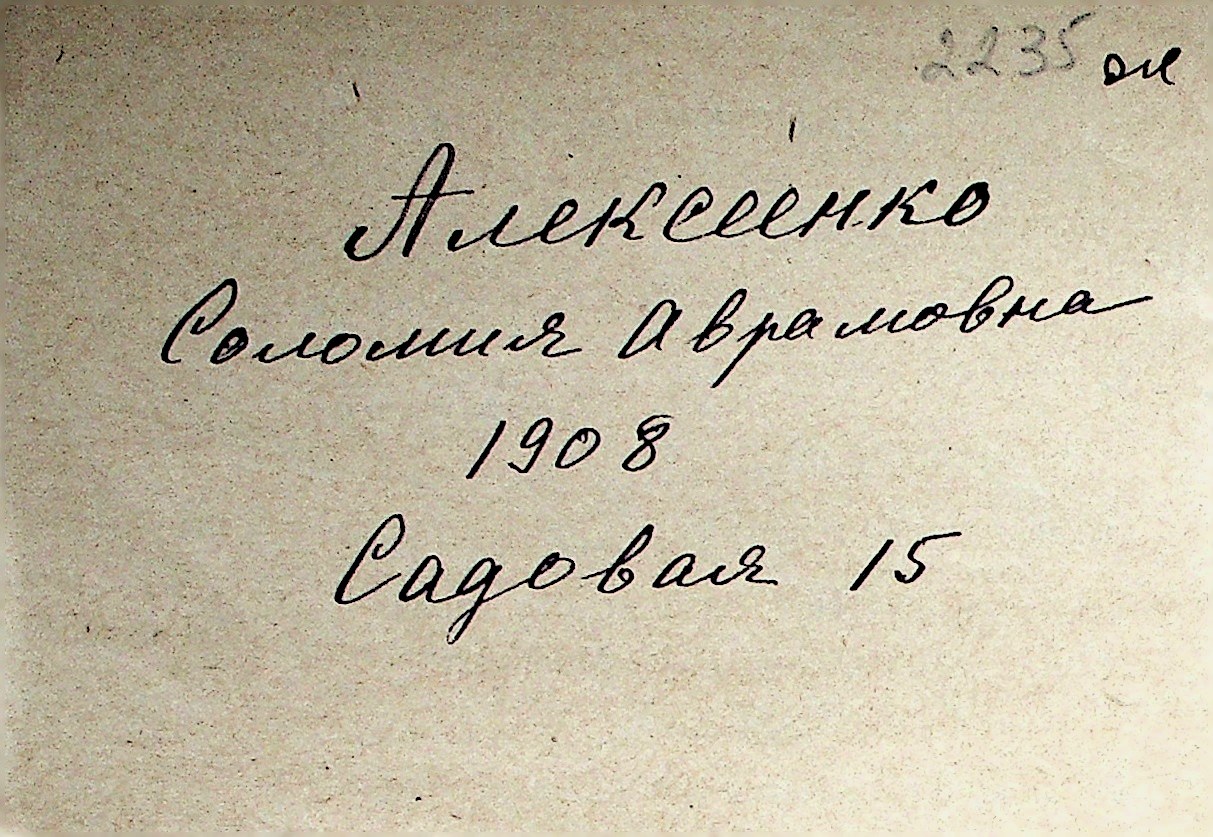 2235 ож
Алексеенко
Соломия Аврамовна
1908
Садовая 15